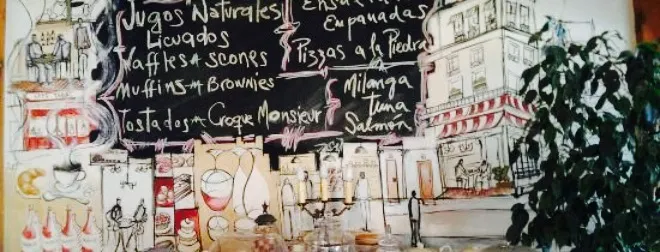 Jugos Naturales
Licuados
Waffles Scones
Muffins Brownies
Tostados Croque Monsieur
Empanadas
Pizzas a la Piedra
Milanga
tuna
Salmón